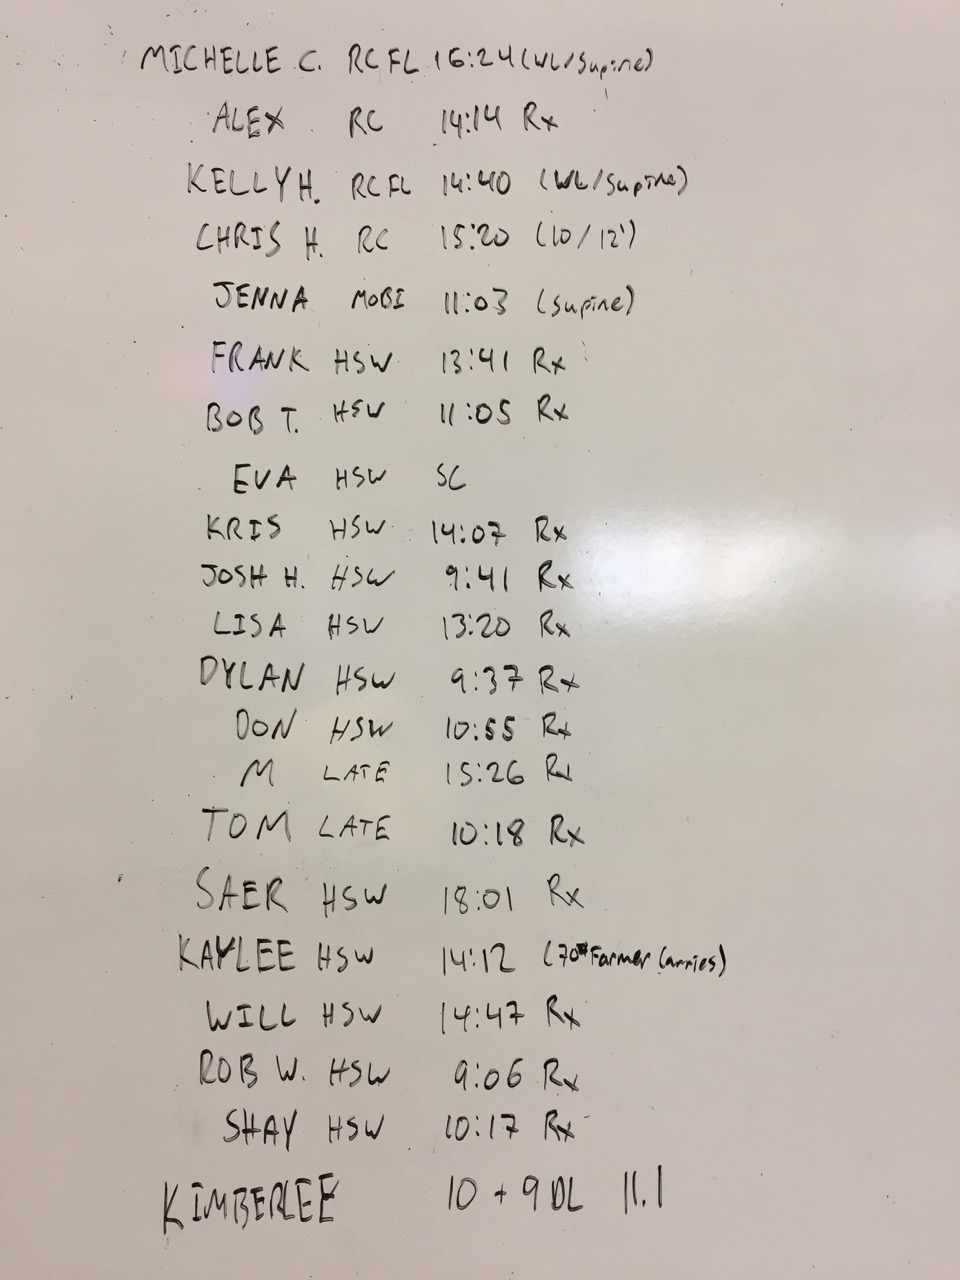 MICHELLE C. RC FL 16:24 (WL/Supine)
ALEX RC 14:14 Rx
KELLY H. RC FL 14:40 (WL/Supine)
CHRIS H. RC 15:20 (10/12')
JENNA MOBI 11:03 (Supine)
FRANK HSW 13:41 Rx
BOB T. HSW 11:05 Rx
EVA HSW SC
KRIS HSW 14:07 Rx
JOSH H. HSW 9:41 Rx
LISA HSW 13:20 Rx
DYLAN HSW 9:37 Rx
DON HSW 10:55 Rx
M LATE 15:26 Rx
TOM LATE 10:18 Rx
SAER HSW 18:01 Rx
KAYLEE HSW 14:12 (70# Farmer Carries)
WILL HSW 14:47 Rx
ROB W. HSW 9:06 Rx
SHAY HSW 10:17 Rx
KIMBERLEE 10 + 9 DL 11.1